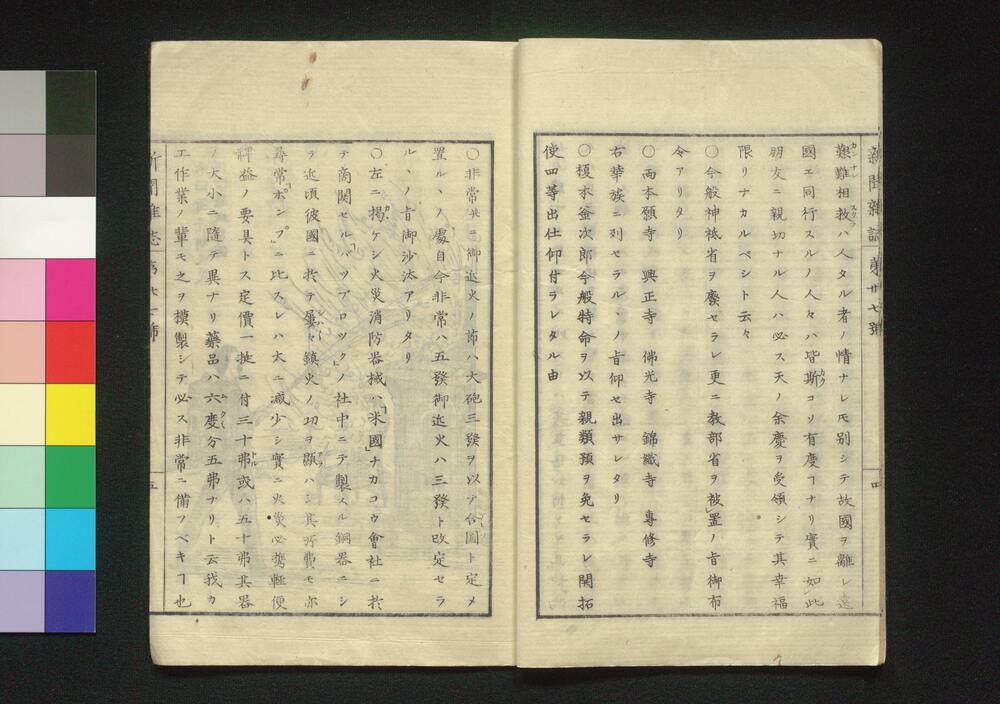 新聞雜誌 第廿七號
艱難相救ハ人タル者ノ情ナレ𪜈別シテ故國ヲ離レ遠
國エ同行スルノ人々ハ皆斯コソ有度ヿナリ實ニ如此
朋友ニ親切ナル人ハ必ス天ノ余慶ヲ受領シテ其幸福
限リナカルベシト云々
〇今般神祇省ヲ廢セラレ更ニ教部省ヲ被置ノ旨御布
令アリタリ
〇兩本願寺 興正寺 佛光寺 錦織寺 專修寺
右華族ニ列セラルヽノ旨仰セ出サレタリ
〇榎本釜次郎今般特命ヲ以テ親類預ヲ免セラレ開拓
使四等出仕仰付ラレタル由
四
〇非常并ニ御近火ノ節ハ大砲三發ヲ以テ合圖ト定メ
置ルヽノ處自今非常ハ五發御近火ハ三發ト改定セラ
ルヽノ旨御沙汰アリタリ
〇左ニ掲ケシ火災消防器械ハ「米國」ナカコウ會社ニ於
テ商関セル「バツブロツク」ノ社中ニテ製スル銅器ニシ
テ近頃彼國ニ於テ屢々鎮火ノ功ヲ顯ハシ其所費モ亦
尋常「ポンプ」ニ比スレハ大ニ減少シ實ニ火災必携輕便
裨益ノ要具トス定價一挺ニ付三十弗或ハ五十弗其器
ノ大小ニ隨テ異ナリ藥品ハ六度分五弗ナリト云我カ
工作業ノ輩モ之ヲ摸製シテ必ス非常ニ備フベキヿ也
新聞雜誌 第廿七號
五